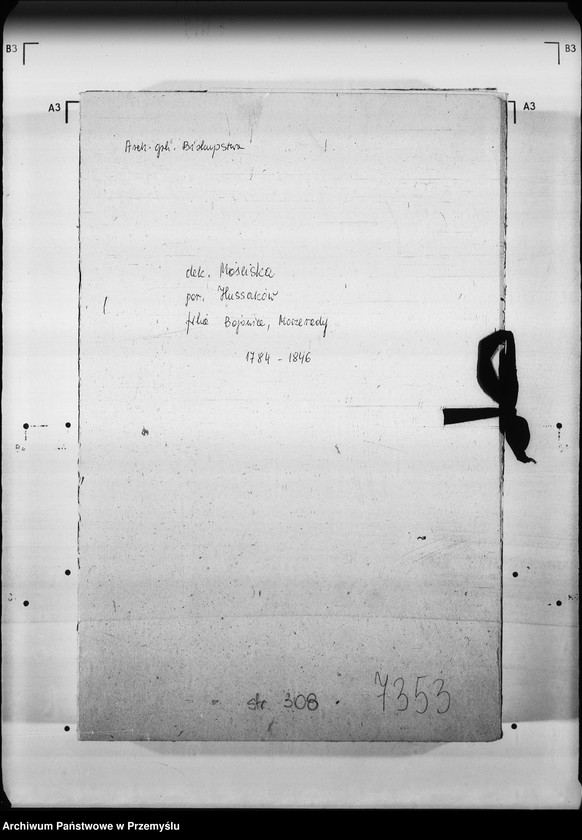 B3
B3
A3
A3
Arch. gr.k. Biskupstwa
dek. Mościska
par. Hussaków
filia Bojowice, Moczerady
1784 - 1846
str. 308
7353
Archiwum Państwowe w Przemyślu